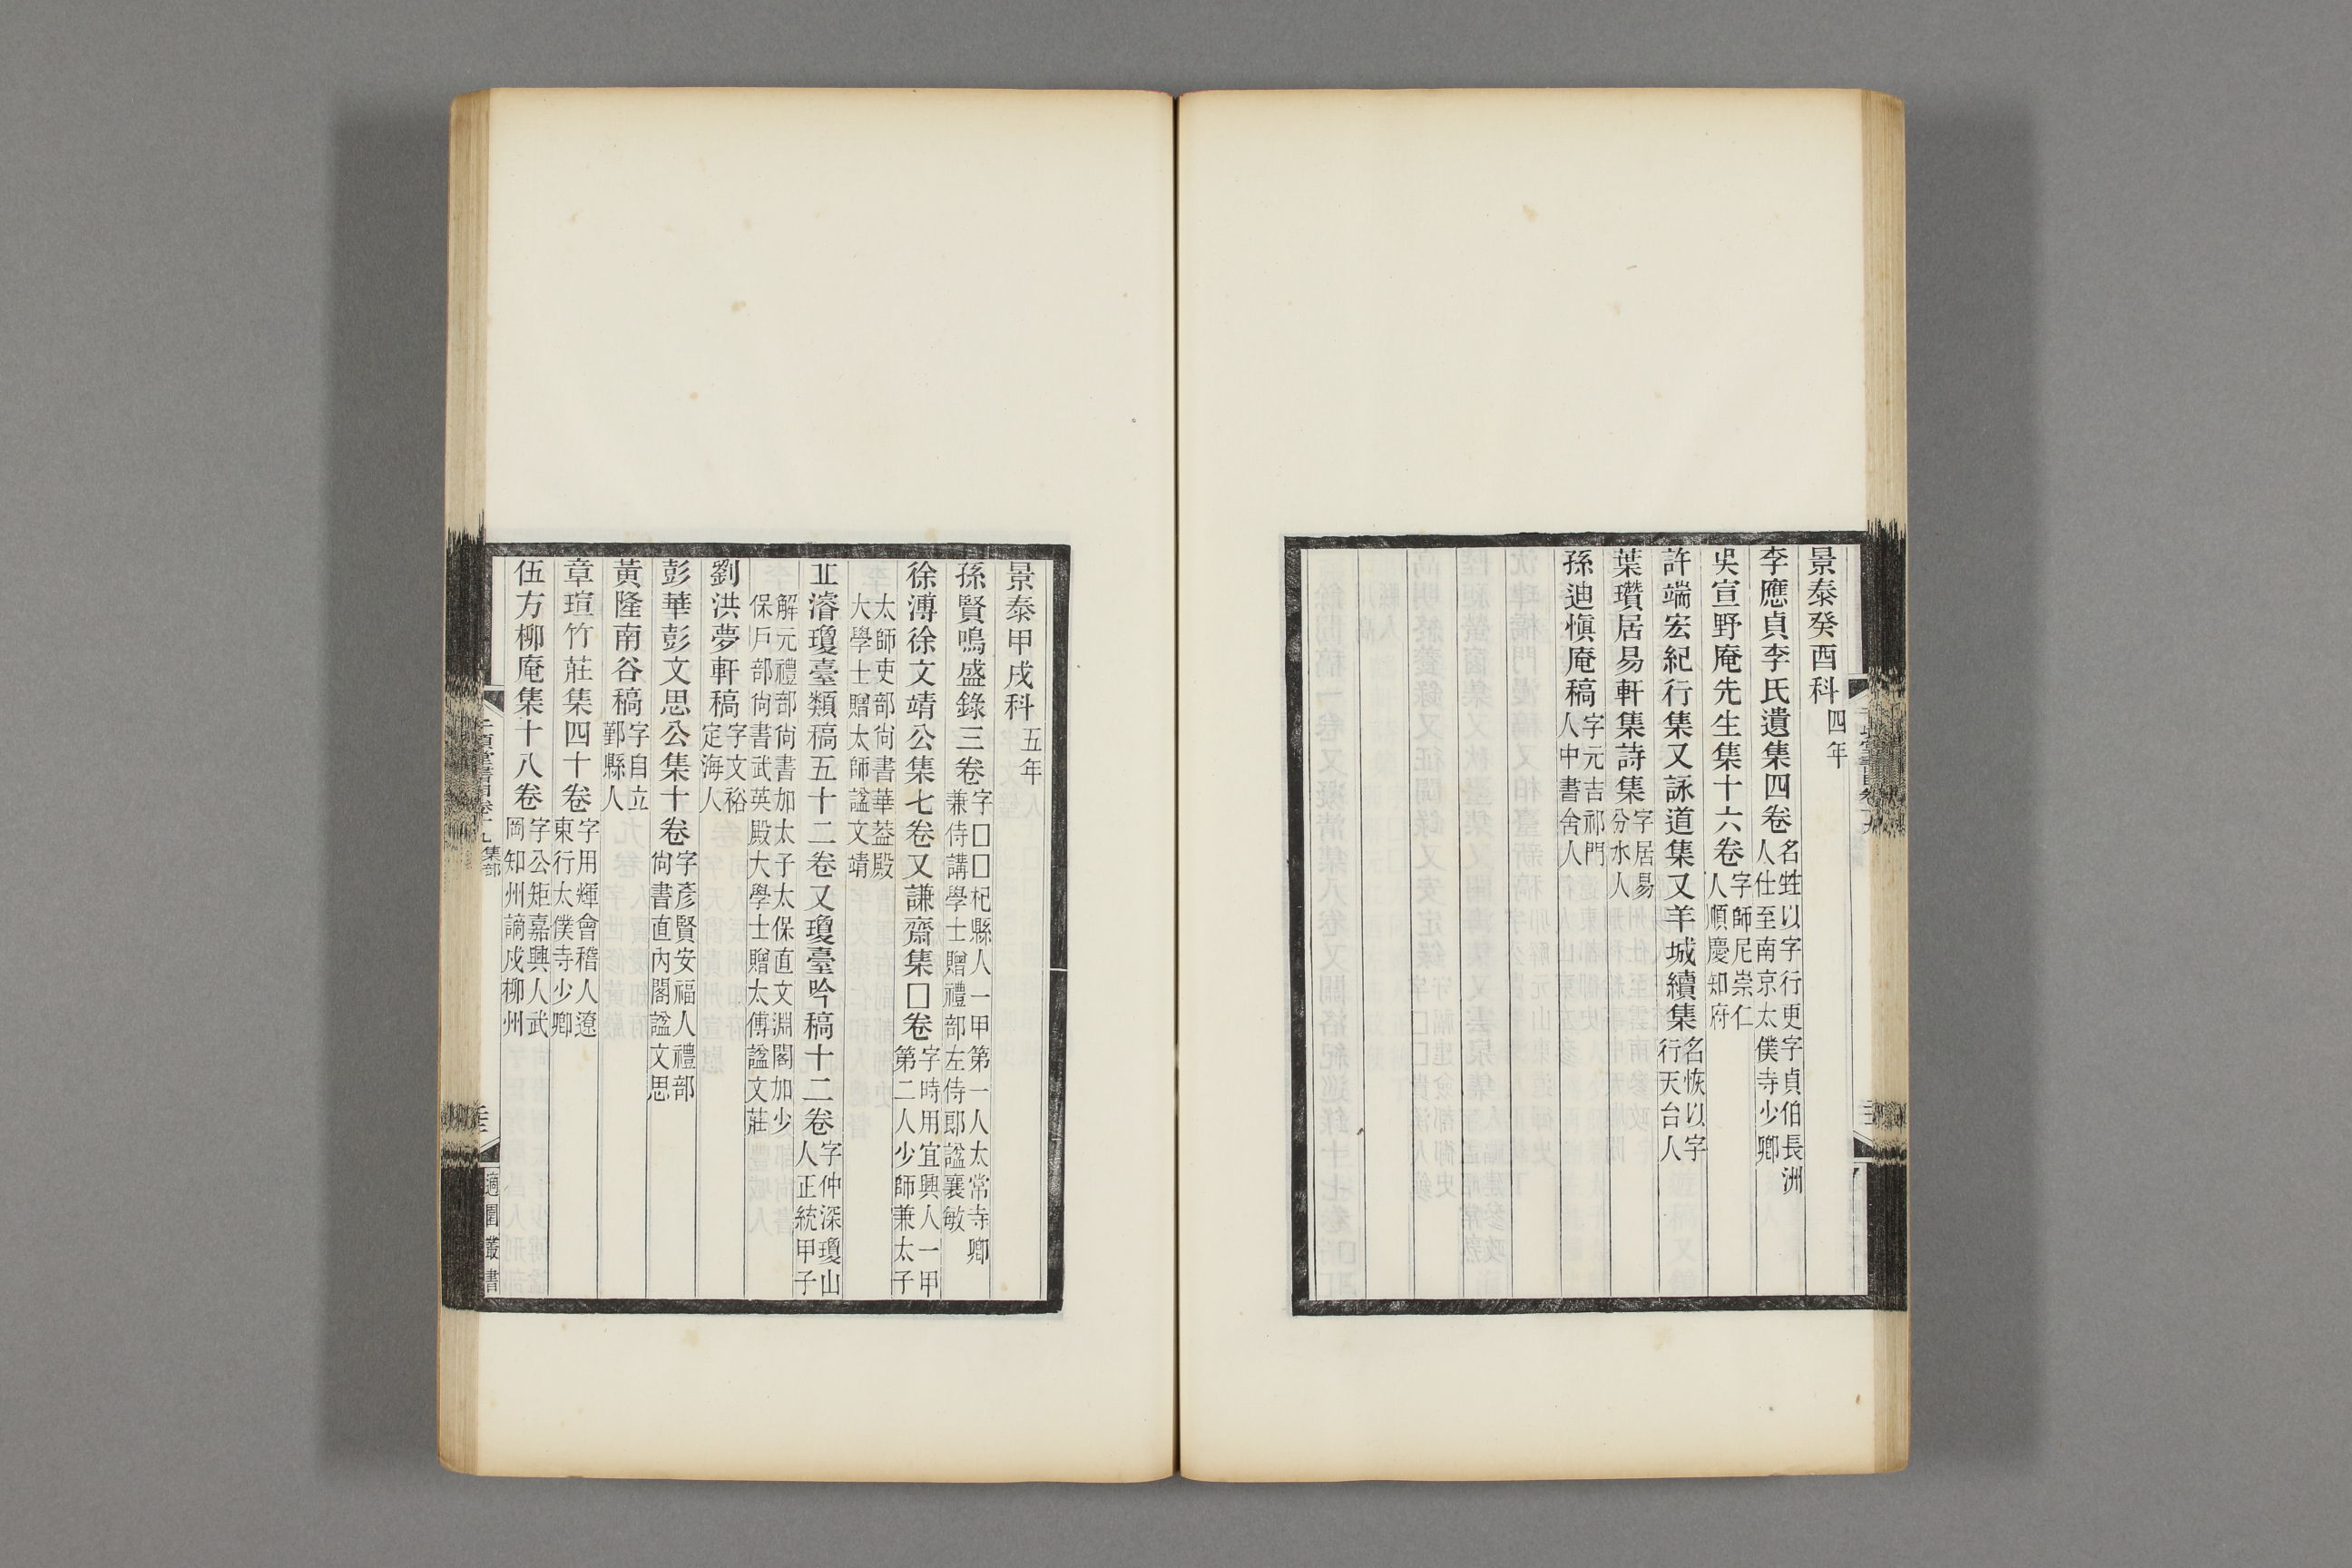 景泰癸酉科四年
李應貞李氏遺集四卷名甡以字行更字貞伯長洲人仕至南京太僕寺少卿
吳宣野庵先生集十六卷字師尼崇仁人順慶知府
許端宏紀行集又詠道集又羊城續集名恢以字行天台人
葉瓚居易軒集詩集字居易分水人
孫迪愼庵稿字元吉祁門人中書舍人
景泰甲戌科五年
孫賢鳴盛錄三卷字□□杞縣人一甲第一人太常寺卿兼侍講學士贈禮部左侍郎諡襄敏
徐溥徐文靖公集七卷又謙齋集□卷字時用宜興人一甲第二人少師兼太子
太師吏部尙書華葢殿大學士贈太師諡文靖
丠濬瓊臺類稿五十二卷又瓊臺吟稿十二卷字仲深瓊山人正統甲子
解元禮部尙書加太子太保直文淵閣加少保戶部尙書武英殿大學士贈太傅諡文莊
劉洪夢軒稿字文裕定海人
彭華彭文思公集十卷字彥賢安福人禮部尙書直內閣諡文思
黃隆南谷稿字自立鄞縣人
章瑄竹莊集四十卷字用輝會稽人遼東行太僕寺少卿
伍方柳庵集十八卷字公矩嘉興人武岡知州謫戍柳州
千頃堂書目卷十九集部
適園叢書